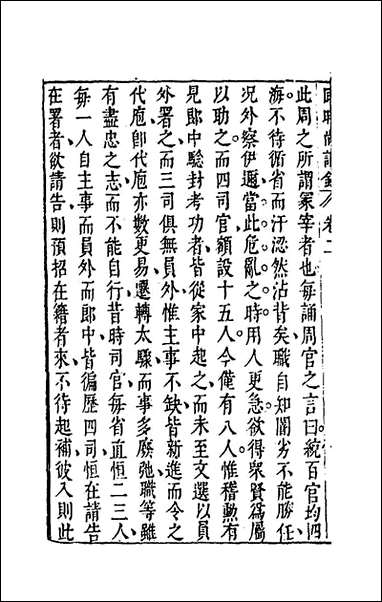 錄 卷二
此周之所謂冢宰者也每誦周官之言曰統百官均四
海不待循省而汗㴬然沾背矣職自知闇劣不能勝任
况外察伊邇當此危亂之時用人更急欲得衆賢爲屬
以助之而四司官額設十五人今僅有八人惟稽勳有
見郎中驗封考功者皆從家中起之而未至文選以員
外署之而三司俱無員外惟主事不缺皆新進而令之
代庖卽代庖亦數更易遷轉太驟而事多廢弛職等雖
有盡忠之志而不能自行昔時司官每省直恒二三人
每一人自主事而員外而郎中皆徧歷四司恒在請告
在署者欲請告則預招在籍者來不待起補彼入則此